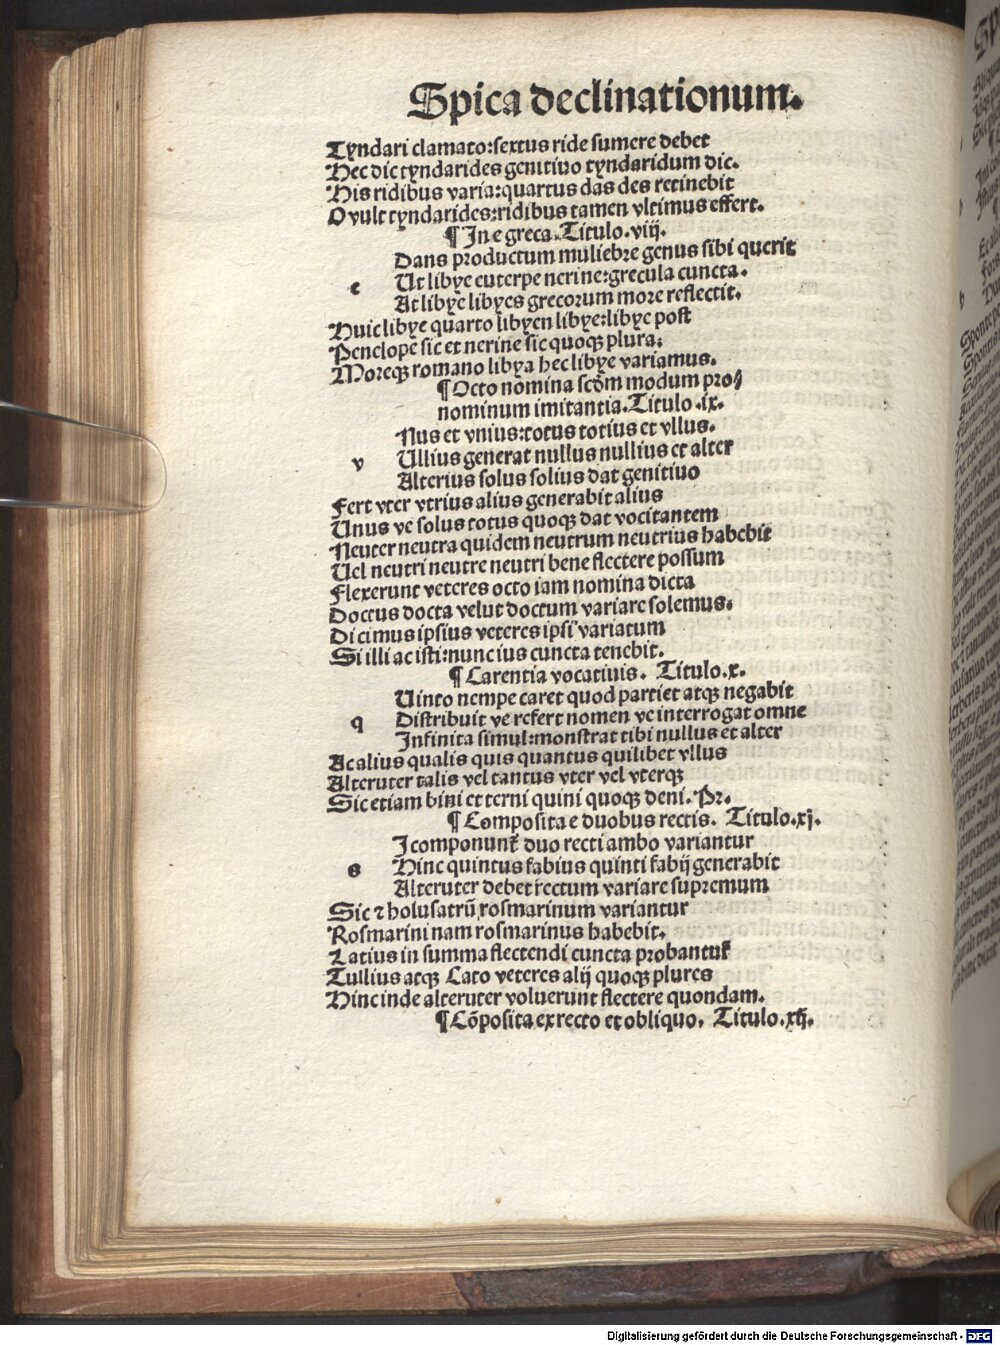 Spica declinationum.
Tyndari clamato:sextus ride sumere debet
Hec dic tyndarides genitiuo tyndaridum dic.
His ridibus varia:quartus das des retinebit
O vult tyndarides:ridibus tamen vltimus effert.
¶ In e greca. Titulo.viij.
Dans productum muliebre genus sibi querit
e Ut libye euterpe nerine:grecula cuncta.
At libye libyes grecorum more reflectit.
Huic libye quarto libyen libye:libye post
Penelope sic et nerine sic quoqꝫ plura:
Moreqꝫ romano libya hec libye variamus.
¶ Octo nomina scōm modum pro⸗
nominum imitantia. Titulo .ix.
Nus et vnius:totus totius et vllus.
v Ullius generat nullus nullius et alter
Alterius solus solius dat genitiuo
Fert vter vtrius alius generabit alius
Unus ve solus totus quoqꝫ dat vocitantem
Neuter neutra quidem neutrum neutrius habebit
Uel neutri neutre neutri bene flectere possum
Flexerunt veteres octo iam nomina dicta
Doctus docta velut doctum variare solemus.
Dicimus ipsius veteres ipsi variatum
Si illi ac isti:nunc ius cuncta tenebit.
¶ Carentia vocatiuis. Titulo.x.
Uinto nempe caret quod partiet atqꝫ negabit
q Distribuit ve refert nomen ve interrogat omne
Infinita simul:monstrat tibi nullus et alter
Ac alius qualis quis quantus quilibet vllus
Alteruter talis vel tantus vter vel vterqꝫ
Sic etiam bini et terni quini quoqꝫ deni. Pr.
¶ Composita e duobus rectis. Titulo.xj.
I componunt̃ duo recti ambo variantur
s Hinc quintus fabius quinti fabij generabit
Alteruter debet rectum variare supremum
Sic ⁊ holusatrū rosmarinum variantur
Rosmarini nam rosmarinus habebit.
Latius in summa flectendi cuncta probantur
Tullius atqꝫ Cato veteres alij quoqꝫ plures
Hinc inde alteruter voluerunt flectere quondam.
¶ Cōposita ex recto et obliquo. Titulo.xij.
Digitalisierung gefördert durch die Deutsche Forschungsgemeinschaft - DFG